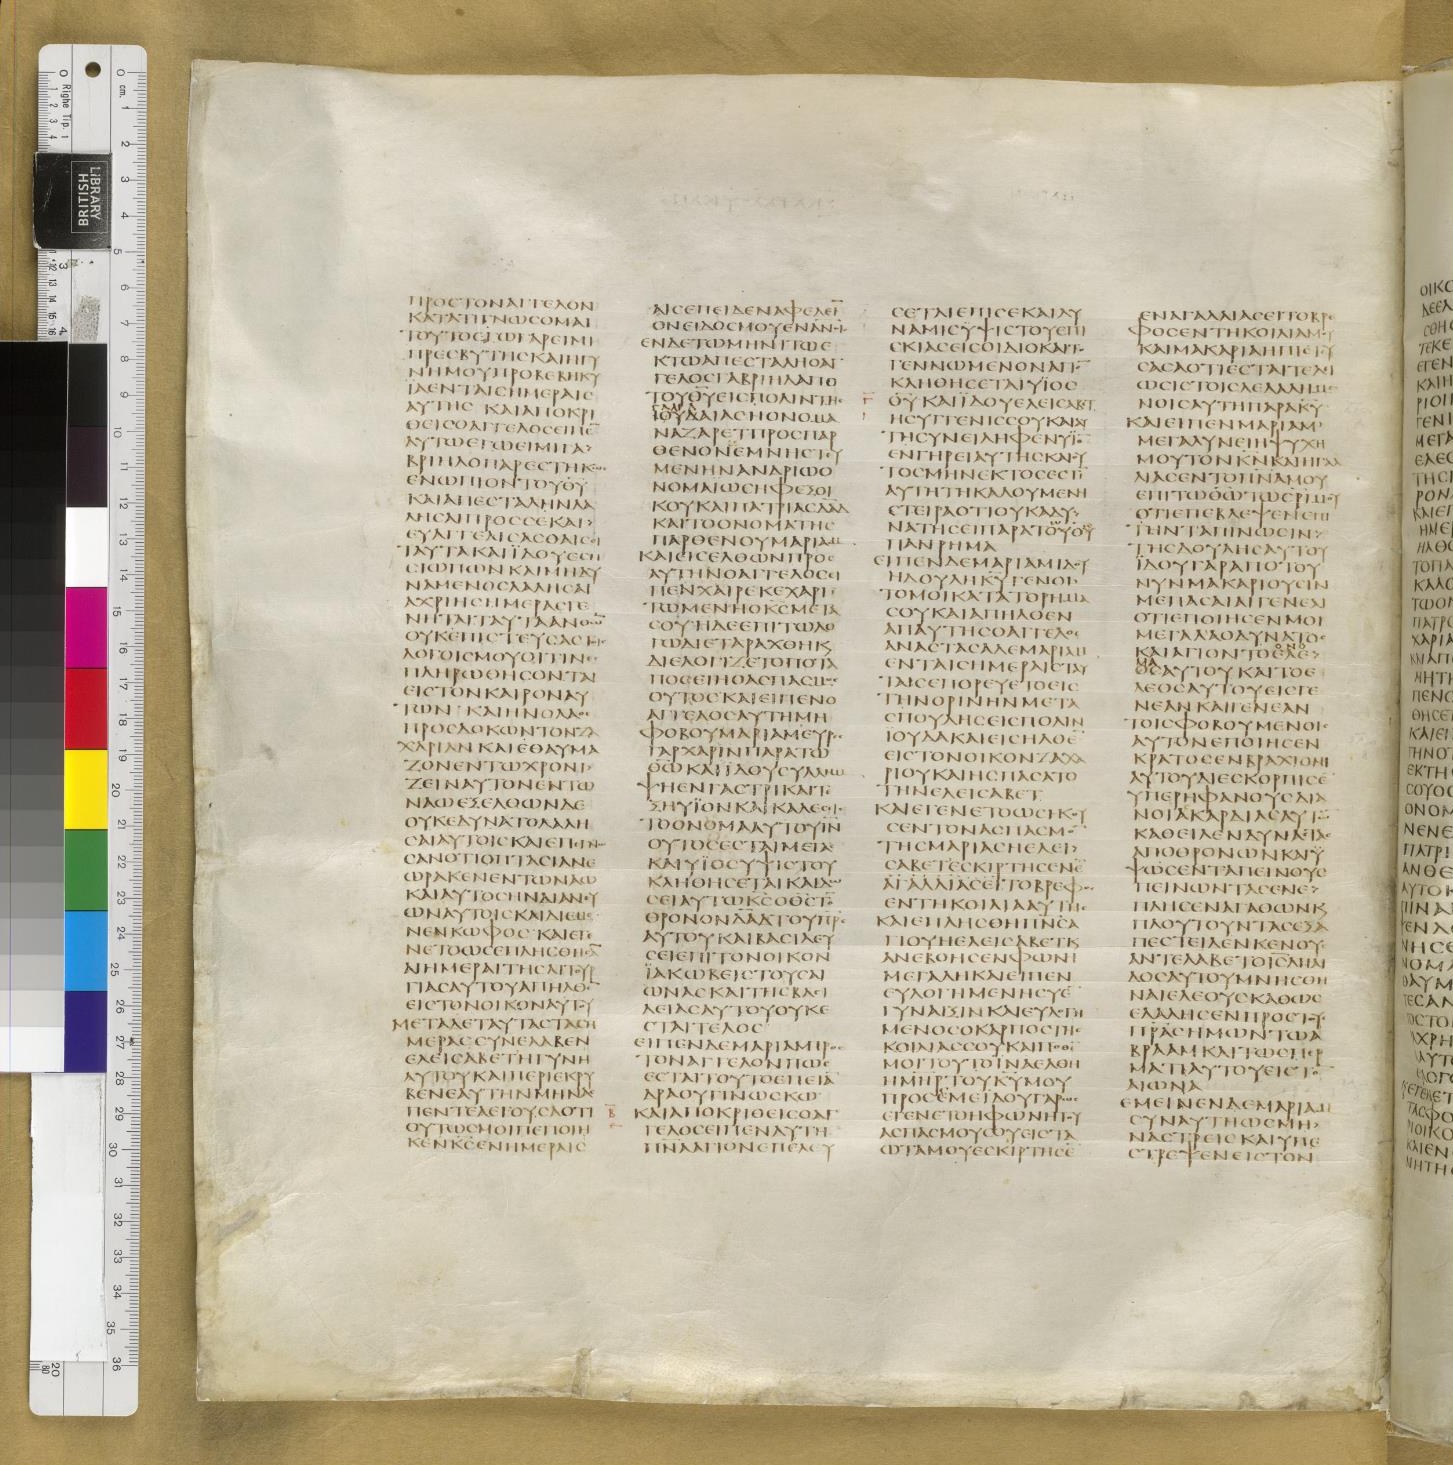 ΠΡΟϹΤΟΝΑΓΓΕΛΟΝ
ΚΑΤΑΤΙΓΝΩϹΟΜΑΙ
ΤΟΥΤΟΕΓΩΓΑΡΕΙΜΙ
ΠΡΕϹΒΥΤΗϹΚΑΙΗΓΥ
ΝΗΜΟΥΠΡΟΒΕΒΗΚΥ
ΙΑΕΝΤΑΙϹΗΜΕΡΑΙϹ
ΑΥΤΗϹ ΚΑΙΑΠΟΚΡΙ
ΘΕΙϹΟΑΓΓΕΛΟϹΕΙΠΕ̅
ΑΥΤΩΕΓΩΕΙΜΙΓΑ
ΒΡΙΗΛΟΠΑΡΕϹΤΗΚΩϹ
ΕΝΩΠΙΟΝΤΟΥΘ̅Υ̅
ΚΑΙΑΠΕϹΤΑΛΗΝΛΑ
ΛΗϹΑΙΠΡΟϹϹΕΚΑΙ
ΕΥΑΓΓΕΛΙϹΑϹΘΑΙϹΟΙ
ΤΑΥΤΑΚΑΙΪΔΟΥΕϹΗ
ϹΙΩΠΩΝΚΑΙΜΗΔΥ
ΝΑΜΕΝΟϹΛΑΛΗϹΑΙ
ΑΧΡΙΗϹΗΜΕΡΑϹΓΕ
ΝΗΤΑΙΤΑΥΤΑΑΝΘΩ̅
ΟΥΚΕΠΙϹΤΕΥϹΑϹΤΟΙϹ
ΛΟΓΟΙϹΜΟΥΟΙΤΙΝΕϹ
ΠΛΗΡΩΘΗϹΟΝΤΑΙ
ΕΙϹΤΟΝΚΑΙΡΟΝΑΥ
ΤΩΝ ΚΑΙΗΝΟΛΑΟϹ
ΠΡΟϹΔΟΚΩΝΤΟΝΖΑ
ΧΑΡΙΑΝΚΑΙΕΘΑΥΜΑ
ΖΟΝΕΝΤΩΧΡΟΝΙ
ΖΕΙΝΑΥΤΟΝΕΝΤΩ
ΝΑΩΕΞΕΛΘΩΝΔΕ
ΟΥΚΕΔΥΝΑΤΟΛΑΛΗ
ϹΑΙΑΥΤΟΙϹΚΑΙΕΠΕΓΝΩ
ϹΑΝΟΤΙΟΠΤΑϹΙΑΝΕ
ΩΡΑΚΕΝΕΝΤΩΝΑΩ
ΚΑΙΑΥΤΟϹΗΝΔΙΑΝΕΥ
ΩΝΑΥΤΟΙϹΚΑΙΔΙΕΜΕ
ΝΕΝΚΩΦΟϹ ΚΑΙΕΓΕ
ΝΕΤΟΩϹΕΠΛΗϹΘΗϹΑ̅
ΑΙΗΜΕΡΑΙΤΗϹΛΙΤΟΥΡ
ΓΙΑϹΑΥΤΟΥΑΠΗΛΘΕ
ΕΙϹΤΟΝΟΙΚΟΝΑΥΤΟΥ
ΜΕΤΑΔΕΤΑΥΤΑϹΤΑϹΗ
ΜΕΡΑϹϹΥΝΕΛΑΒΕΝ
ΕΛΕΙϹΑΒΕΤΗΓΥΝΗ
ΑΥΤΟΥΚΑΙΠΕΡΙΕΚΡΥ
ΒΕΝΕΑΥΤΗΝΜΗΝΑϹ
ΠΕΝΤΕΛΕΓΟΥϹΑΟΤΙ
ΟΥΤΩϹΜΟΙΠΕΠΟΙΗ
ΚΕΝΚ̅Ϲ̅ΕΝΗΜΕΡΑΙϹ
ΑΙϹΕΠΕΙΔΕΝΑΦΕΛΕΙ̅
ΟΝΕΙΔΟϹΜΟΥΕΝΑΝΟΙϹ
ΕΝΔΕΤΩΜΗΝΙΤΩΕ
ΚΤΩΑΠΕϹΤΑΛΗΟΑΓ
ΓΕΛΟϹΓΑΒΡΙΗΛΑΠΟ
ΤΟΥΘ̅Υ̅ΕΙϹΠΟΛΙΝΤΗϹ
ΙΟΥΔΑΙΑϹΗΟΝΟΜΑ
ΝΑΖΑΡΕΤΠΡΟϹΠΑΡ
ΘΕΝΟΝΕΜΝΗϹΤΕΥ
ΜΕΝΗΝΑΝΔΡΙΩΟ
ΝΟΜΑΙΩϹΗΦΕΞΟΙ
ΚΟΥΚΑΙΠΑΤΡΙΑϹΔ̅Α̅Δ̅
ΚΑΙΤΟΟΝΟΜΑΤΗϹ
ΠΑΡΘΕΝΟΥΜΑΡΙΑΜ
ΚΑΙΕΙϹΕΛΘΩΝΠΡΟϹ
ΑΥΤΗΝΟΑΓΓΕΛΟϹΕΙ
ΠΕΝΧΑΙΡΕΚΕΧΑΡΙ
ΤΩΜΕΝΗΟΚ̅Ϲ̅ΜΕΤΑ
ϹΟΥΗΔΕΕΠΙΤΩΛΟ
ΓΩΔΙΕΤΑΡΑΧΘΗΚΑΙ
ΔΙΕΛΟΓΙΖΕΤΟΠΟΤΑ
ΠΟϹΕΙΗΟΑϹΠΑϹΜΟϹ
ΟΥΤΟϹΚΑΙΕΙΠΕΝΟ
ΑΓΓΕΛΟϹΑΥΤΗΜΗ
ΦΟΒΟΥΜΑΡΙΑΜΕΥΡΕϹ
ΓΑΡΧΑΡΙΝΠΑΡΑΤΩ
Θ̅Ω̅ΚΑΙΪΔΟΥϹΥΛΛΗΜ
ΨΗΕΝΓΑϹΤΡΙΚΑΙΤΕ
ΞΗΥΪΟΝΚΑΙΚΑΛΕϹΙϹ
ΤΟΟΝΟΜΑΑΥΤΟΥΙ̅Ν̅
ΟΥΤΟϹΕϹΤΑΙΜΕΓΑϹ
ΚΑΙΥΪΟϹΥΨΙϹΤΟΥ
ΚΛΗΘΗϹΕΤΑΙΚΑΙΔΩ
ϹΕΙΑΥΤΩΚ̅Ϲ̅ΟΘ̅Ϲ̅ΤΟ̅
ΘΡΟΝΟΝΔ̅Α̅Δ̅ΤΟΥΠ̅Ρ̅Ϲ̅
ΑΥΤΟΥΚΑΙΒΑϹΙΛΕΥ
ϹΕΙΕΠΙΤΟΝΟΙΚΟΝ
ΪΑΚΩΒΕΙϹΤΟΥϹΑΙ
ΩΝΑϹΚΑΙΤΗϹΒΑϹΙ
ΛΕΙΑϹΑΥΤΟΥΟΥΚΕ
ϹΤΑΙΤΕΛΟϹ
ΕΙΠΕΝΔΕΜΑΡΙΑΜΠΡΟϹ
ΤΟΝΑΓΓΕΛΟΝΠΩϹ
ΕϹΤΑΙΤΟΥΤΟΕΠΕΙΑ̅
ΔΡΑΟΥΓΙΝΩϹΚΩ
ΚΑΙΑΠΟΚΡΙΘΕΙϹΟΑΓ
ΓΕΛΟϹΕΙΠΕΝΑΥΤΗ
Π̅Ν̅Α̅ΑΓΙΟΝΕΠΕΛΕΥ
ϹΕΤΑΙΕΠΙϹΕΚΑΙΔΥ
ΝΑΜΙϹΥΨΙϹΤΟΥΕΠΙ
ϹΚΙΑϹΕΙϹΟΙΔΙΟΚΑΙΤΟ
ΓΕΝΝΩΜΕΝΟΝΑΓΙ
ΚΛΗΘΗϹΕΤΑΙΥΪΟϹ
Θ̅Υ̅ΚΑΙΪΔΟΥΕΛΕΙϹΑΒΕΤ
ΗϹΥΓΓΕΝΙϹϹΟΥΚΑΙΑΥ
ΤΗϹΥΝΕΙΛΗΦΕΝΥΪΟ̅
ΕΝΓΗΡΕΙΑΥΤΗϹΚΑΙΟΥ
ΤΟϹΜΗΝΕΚΤΟϹΕϹΤΙ̅
ΑΥΤΗΤΗΚΑΛΟΥΜΕΝΗ
ϹΤΕΙΡΑΟΤΙΟΥΚΑΔΥ
ΝΑΤΗϹΕΙΠΑΡΑΤΟΥΘ̅Υ̅
ΠΑΝΡΗΜΑ
ΕΙΠΕΝΔΕΜΑΡΙΑΜΙΔΟΥ
ΗΔΟΥΛΗΚ̅Υ̅ΓΕΝΟΙ
ΤΟΜΟΙΚΑΤΑΤΟΡΗΜΑ
ϹΟΥΚΑΙΑΠΗΛΘΕΝ
ΑΠΑΥΤΗϹΟΑΓΓΕΛΟϹ
ΑΝΑϹΤΑϹΑΔΕΜΑΡΙΑΜ
ΕΝΤΑΙϹΗΜΕΡΑΙϹΤΑΥ
ΤΑΙϹΕΠΟΡΕΥΕΤΟΕΙϹ
ΤΗΝΟΡΙΝΗΝΜΕΤΑ
ϹΠΟΥΔΗϹΕΙϹΠΟΛΙΝ
ΙΟΥΔΑΚΑΙΕΙϹΗΛΘΕ̅
ΕΙϹΤΟΝΟΙΚΟΝΖΑΧΑ
ΡΙΟΥΚΑΙΗϹΠΑϹΑΤΟ
ΤΗΝΕΛΕΙϹΑΒΕΤ
ΚΑΙΕΓΕΝΕΤΟΩϹΗΚΟΥ
ϹΕΝΤΟΝΑϹΠΑϹΜΟ
ΤΗϹΜΑΡΙΑϹΗΕΛΕΙ
ϹΑΒΕΤΕϹΚΙΡΤΗϹΕΝΕ̅
ΑΓΑΛΛΙΑϹΕΙΤΟΒΡΕΦΟϹ
ΕΝΤΗΚΟΙΛΙΑΑΥΤΗϹ
ΚΑΙΕΠΛΗϹΘΗΠ̅Ν̅Ϲ̅Α
ΓΙΟΥΗΕΛΕΙϹΑΒΕΤΚΑΙ
ΑΝΕΒΟΗϹΕΝΦΩΝΗ
ΜΕΓΑΛΗΚΑΙΕΙΠΕΝ
ΕΥΛΟΓΗΜΕΝΗϹΥΕ̅
ΓΥΝΑΙΞΙΝΚΑΙΕΥΛΟΓΗ
ΜΕΝΟϹΟΚΑΡΠΟϹΤΗϹ
ΚΟΙΛΙΑϹϹΟΥΚΑΙΠΟΘΕ̅
ΜΟΙΤΟΥΤΟΪΝΑΕΛΘΗ
ΗΜ̅Η̅Ρ̅ΤΟΥΚ̅Υ̅ΜΟΥ
ΠΡΟϹΕΜΕΪΔΟΥΓΑΡΩϹ
ΕΓΕΝΕΤΟΗΦΩΝΗΤΟΥ
ΑϹΠΑϹΜΟΥϹΟΥΕΙϹΤΑ
ΩΤΑΜΟΥΕϹΚΙΡΤΗϹΕ̅
ΕΝΑΓΑΛΛΙΑϹΕΙΤΟΒΡΕ
ΦΟϹΕΝΤΗΚΟΙΛΙΑΜΟΥ
ΚΑΙΜΑΚΑΡΙΑΗΠΙϹΤΕΥ
ϹΑϹΑΟΤΙΕϹΤΑΙΤΕΛΕΙ
ΩϹΙϹΤΟΙϹΛΕΛΑΛΗΜΕ
ΝΟΙϹΑΥΤΗΠΑΡΑΚ̅Υ̅
ΚΑΙΕΙΠΕΝΜΑΡΙΑΜ
ΜΕΓΑΛΥΝΕΙΗΨΥΧΗ
ΜΟΥΤΟΝΚ̅Ν̅ΚΑΙΗΓΑΛ
ΛΙΑϹΕΝΤΟΠ̅Ν̅Α̅ΜΟΥ
ΕΠΙΤΩΘ̅Ω̅ΤΩϹ̅Ρ̅Ι̅ΜΟΥ
ΟΤΙΕΠΕΒΛΕΨΕΝΕΠΙ
ΤΗΝΤΑΠΙΝΩϹΙΝ
ΤΗϹΔΟΥΛΗϹΑΥΤΟΥ
ΪΔΟΥΓΑΡΑΠΟΤΟΥ
ΝΥΝΜΑΚΑΡΙΟΥϹΙΝ
ΜΕΠΑϹΑΙΑΙΓΕΝΕΑΙ
ΟΤΙΕΠΟΙΗϹΕΝΜΟΙ
ΜΕΓΑΛΑΟΔΥΝΑΤΟϹ
ΚΑΙΑΓΙΟΝΤΟΕΛΕ
ΟϹΑΥΤΟΥΚΑΙΤΟΕ
ΛΕΟϹΑΥΤΟΥΕΙϹΓΕ
ΝΕΑΝΚΑΙΓΕΝΕΑΝ
ΤΟΙϹΦΟΒΟΥΜΕΝΟΙϹ
ΑΥΤΟΝΕΠΟΙΗϹΕΝ
ΚΡΑΤΟϹΕΝΒΡΑΧΙΟΝΙ
ΑΥΤΟΥΔΙΕϹΚΟΡΠΙϹΕ̅
ΥΠΕΡΗΦΑΝΟΥϹΔΙΑ
ΝΟΙΑΚΑΡΔΙΑϹΑΥΤΩ
ΚΑΘΕΙΛΕΝΔΥΝΑϹΤΑϹ
ΑΠΟΘΡΟΝΩΝΚΑΙΥ
ΨΩϹΕΝΤΑΠΕΙΝΟΥϹ
ΠΕΙΝΩΝΤΑϹΕΝΕ
ΠΛΗϹΕΝΑΓΑΘΩΝΚΑΙ
ΠΛΟΥΤΟΥΝΤΑϹΕΞΑ
ΠΕϹΤΕΙΛΕΝΚΕΝΟΥϹ
ΑΝΤΕΛΑΒΕΤΟΙ̅Ϲ̅Η̅Λ̅ΠΑΙ
ΔΟϹΑΥΤΟΥΜΝΗϹΘΗ
ΝΑΙΕΛΕΟΥϹΚΑΘΩϹ
ΕΛΑΛΗϹΕΝΠΡΟϹΤΟΥϹ
Π̅Ρ̅Α̅Ϲ̅ΗΜΩΝΤΩΑ
ΒΡΑΑΜΚΑΙΤΩϹΠΕΡ
ΜΑΤΙΑΥΤΟΥΕΙϹΤΟ
ΑΙΩΝΑ
ΕΜΕΙΝΕΝΔΕΜΑΡΙΑΜ
ϹΥΝΑΥΤΗΩϹΜΗ
ΝΑϹΤΡΕΙϹΚΑΙΥΠΕ
ϹΤΡΕΨΕΝΕΙϹΤΟΝ
BRITISH
LIBRARY